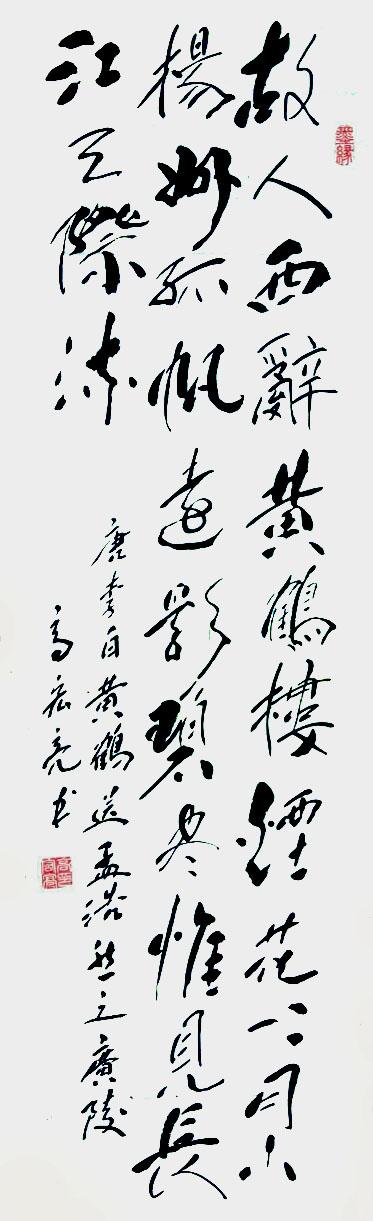 故人西辭黄鶴樓煙花三月下
楊州孤帆遠影碧尽惟見長
江天際流
唐李白黄鶴送孟浩然之廣陵
高宏亮书
墨緣